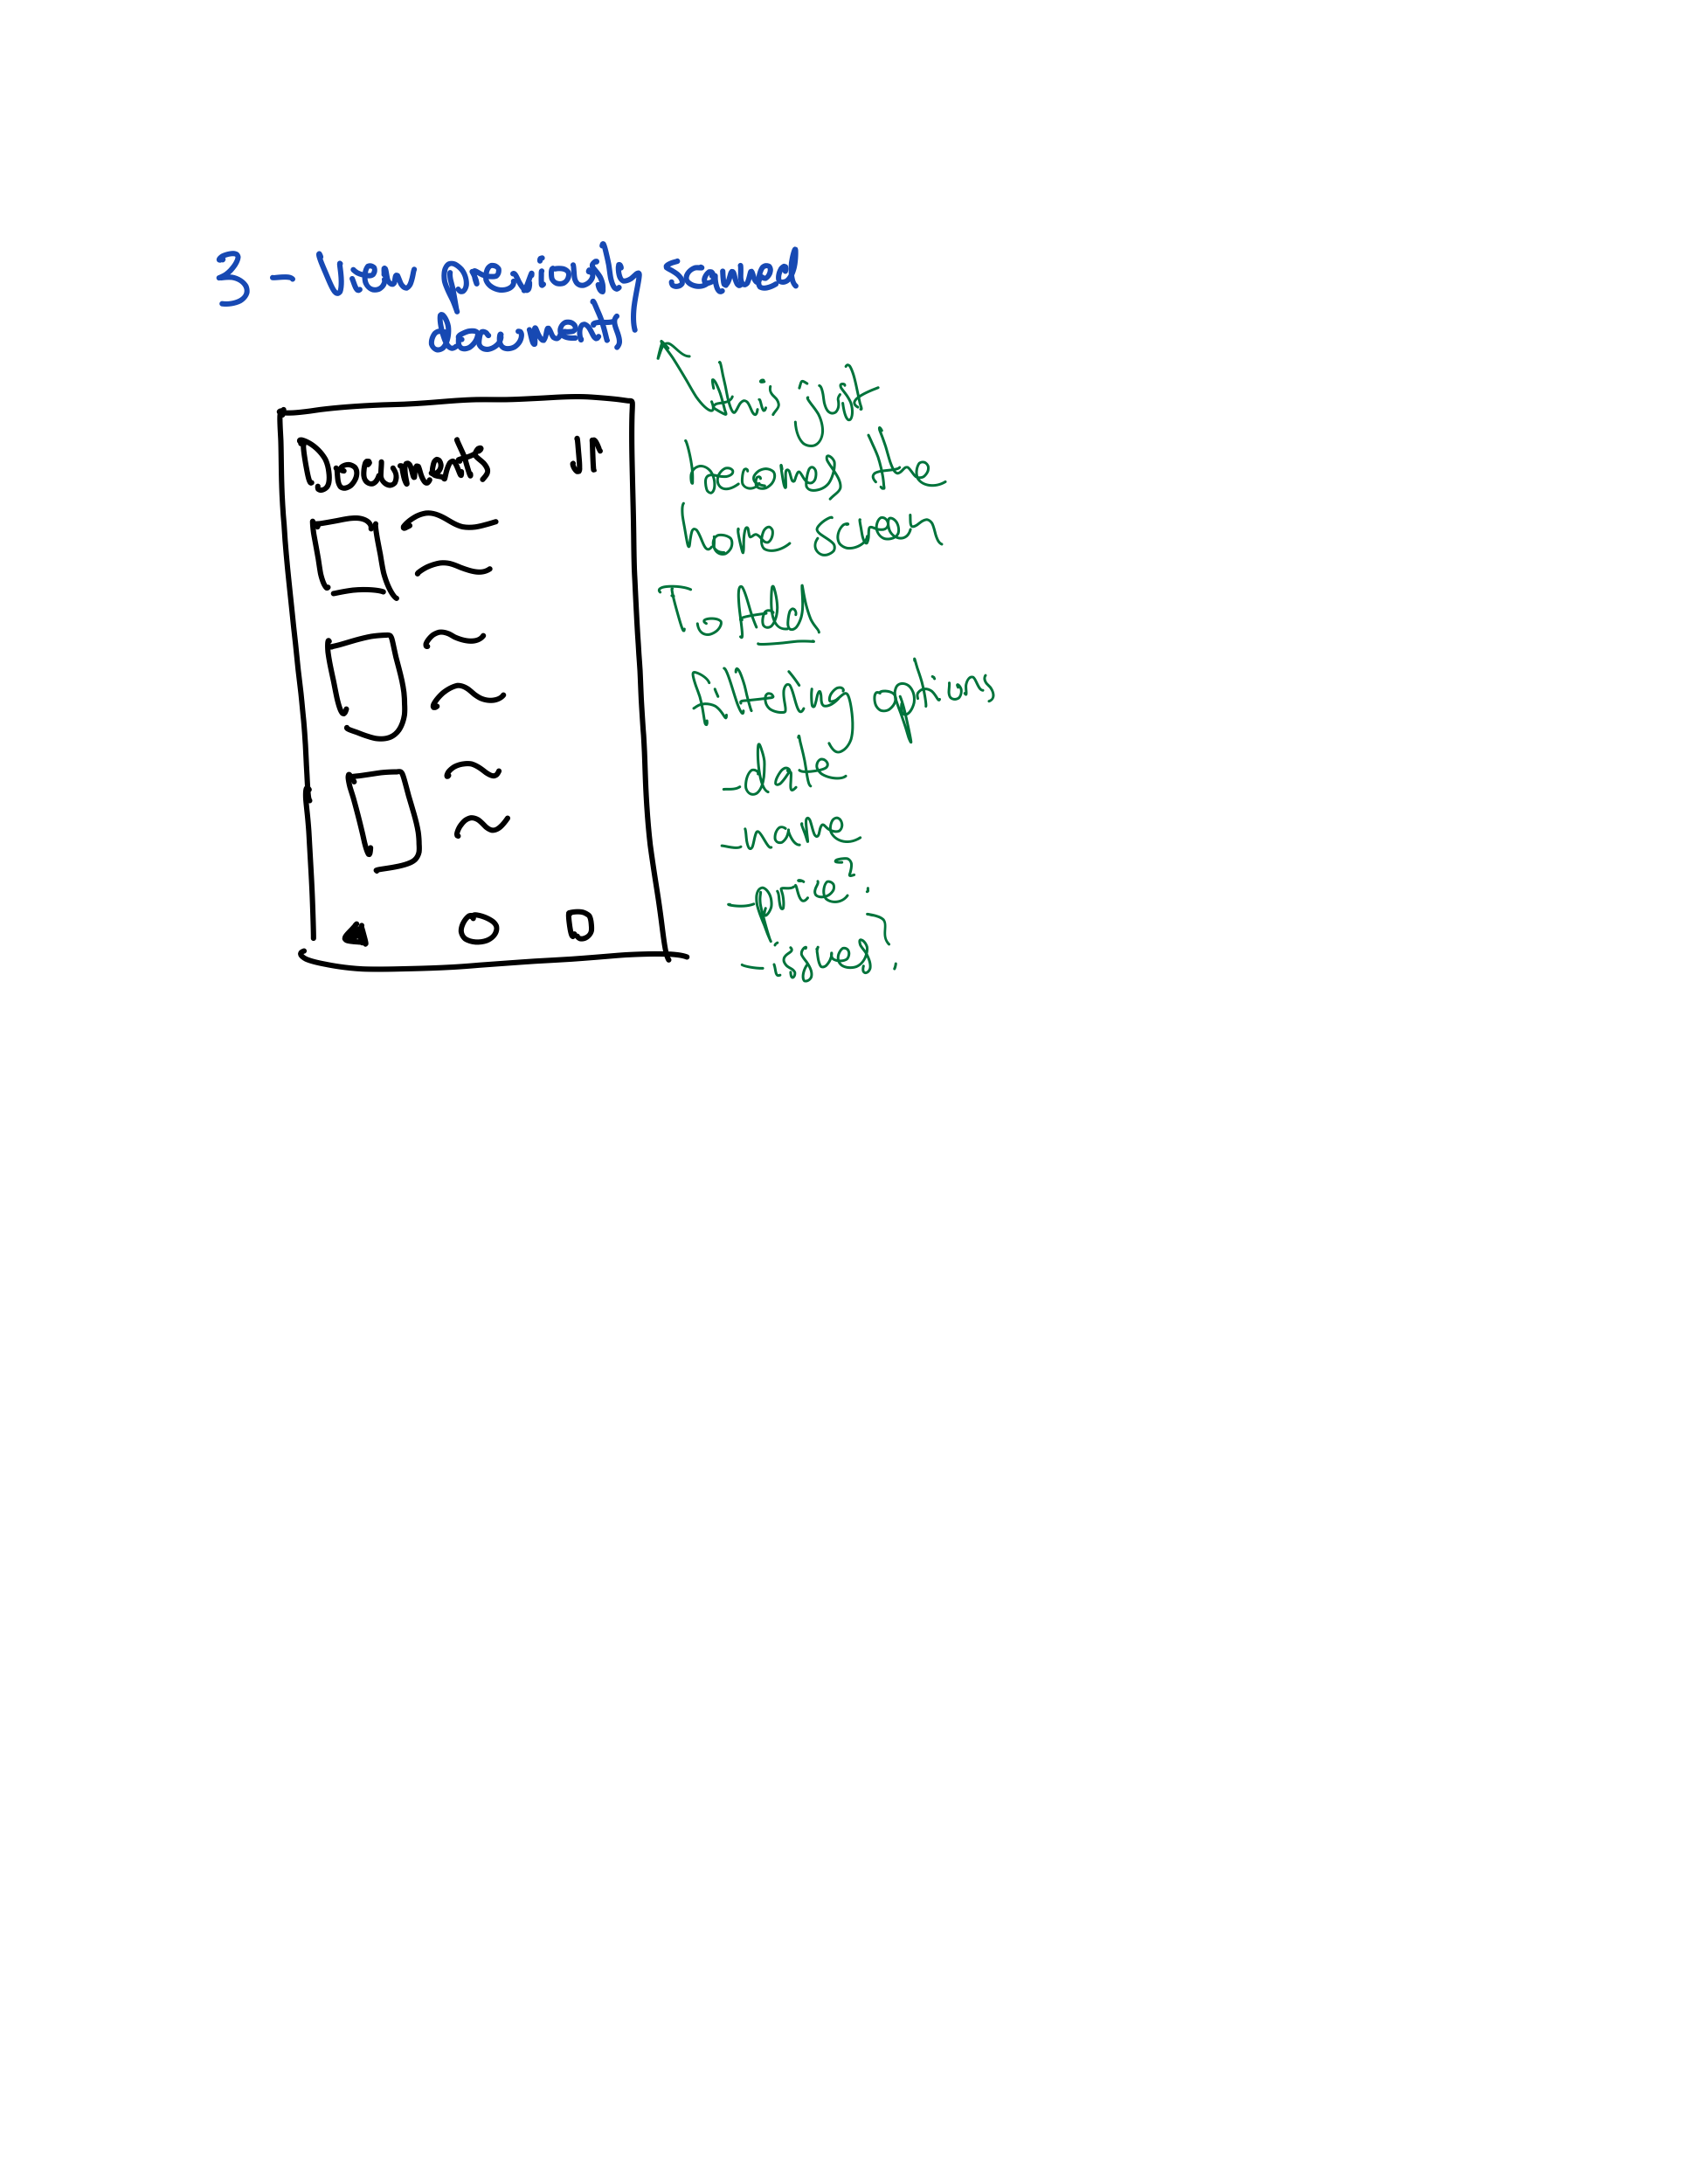 3 - View previously scanned
documents
this just
becomes the
home screen
Documents
To Add
filtering options
- date
- name
- price?
- issues?